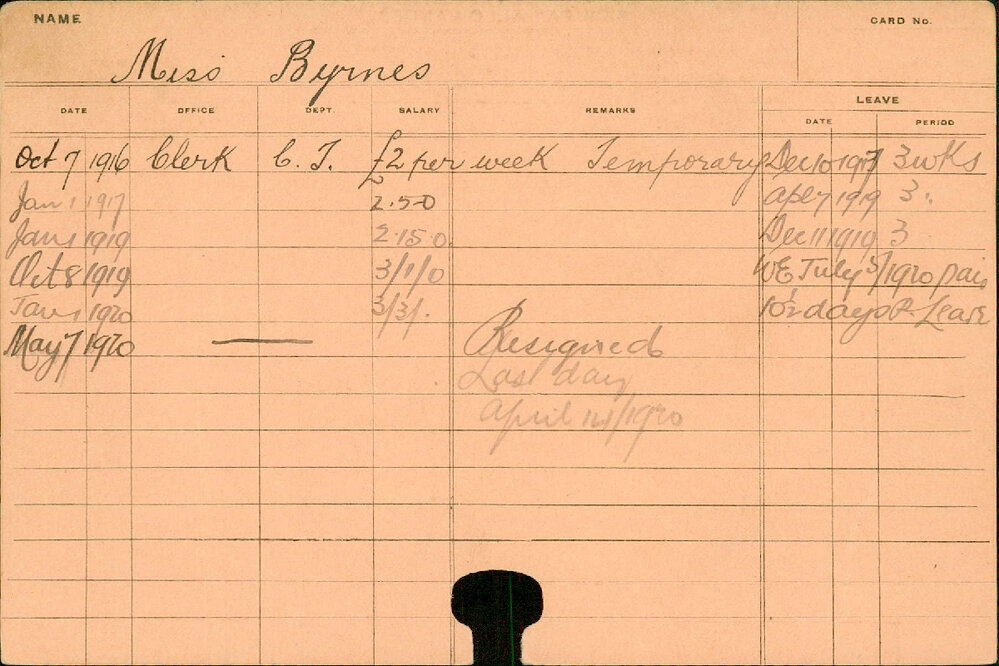 NAME
CARD No.
Miss Byrnes
DATE OFFICE DEPT. SALARY REMARKS LEAVE
DATE PERIOD
Oct 7 1916 Clerk C. T. £2 per week Temporary Dec 10 1917 3 wks
Jan 1 1917 2.5-0 Apl 7 1919 3 "
Jan 1 1919 2.15.0 Dec 11 1919 3
Oct 8 1919 3/1/0 WE July 3/1920 paid
Jan 1 1920 3/3/. 10½ days R. Leave
May 7 1920 — Resigned
Last day
April 14/1920